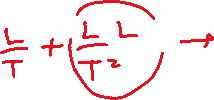 L/T + L/T² L →